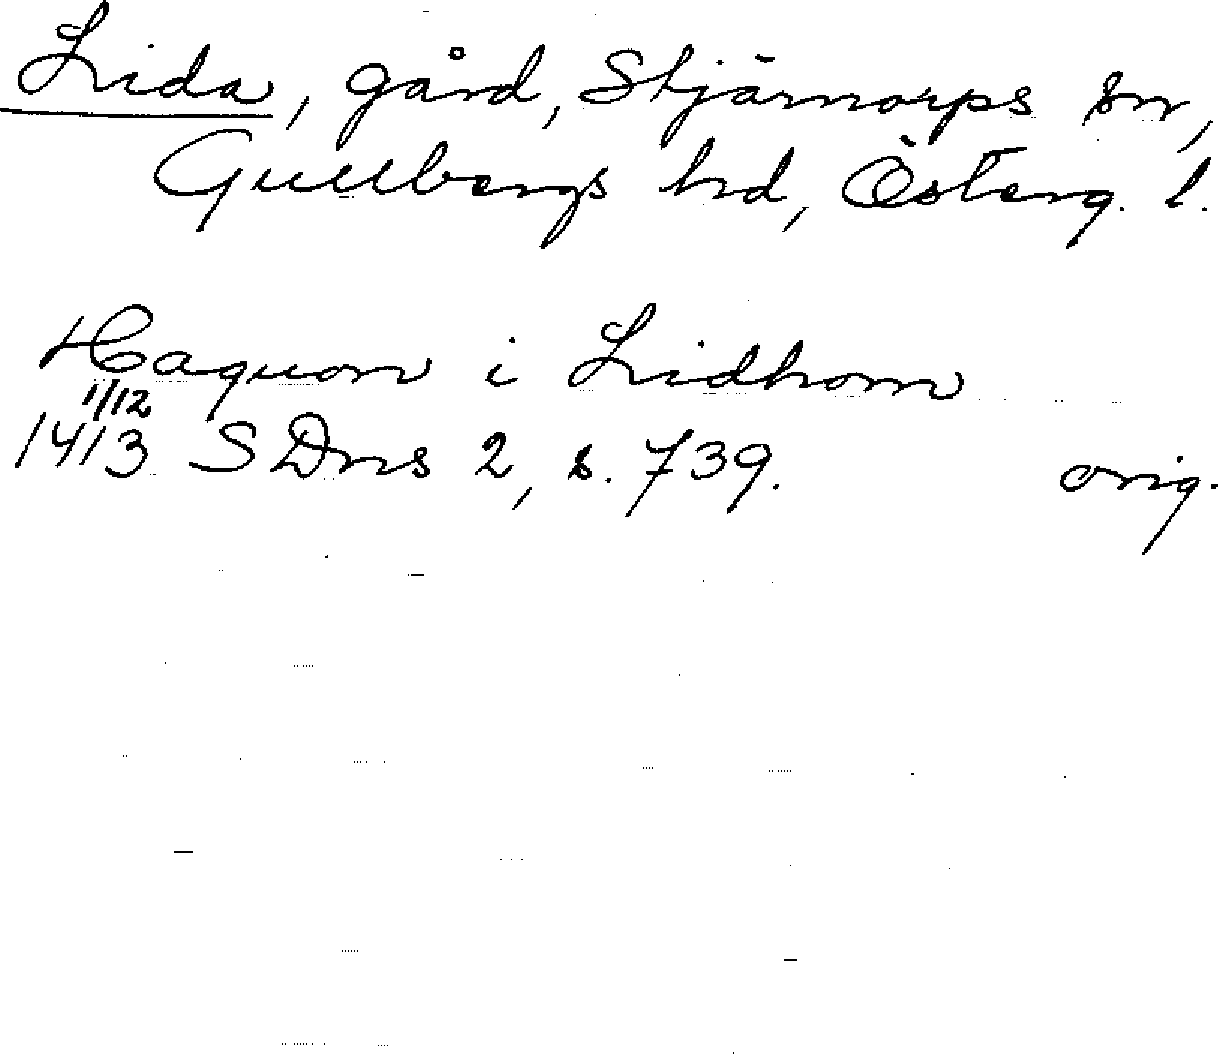 Lida, gård, Stjärnorps sn,
Gullbergs hd, Österg. l.
Haquon i Lidhom
1/12
1413 SDns 2, s. 739. orig.